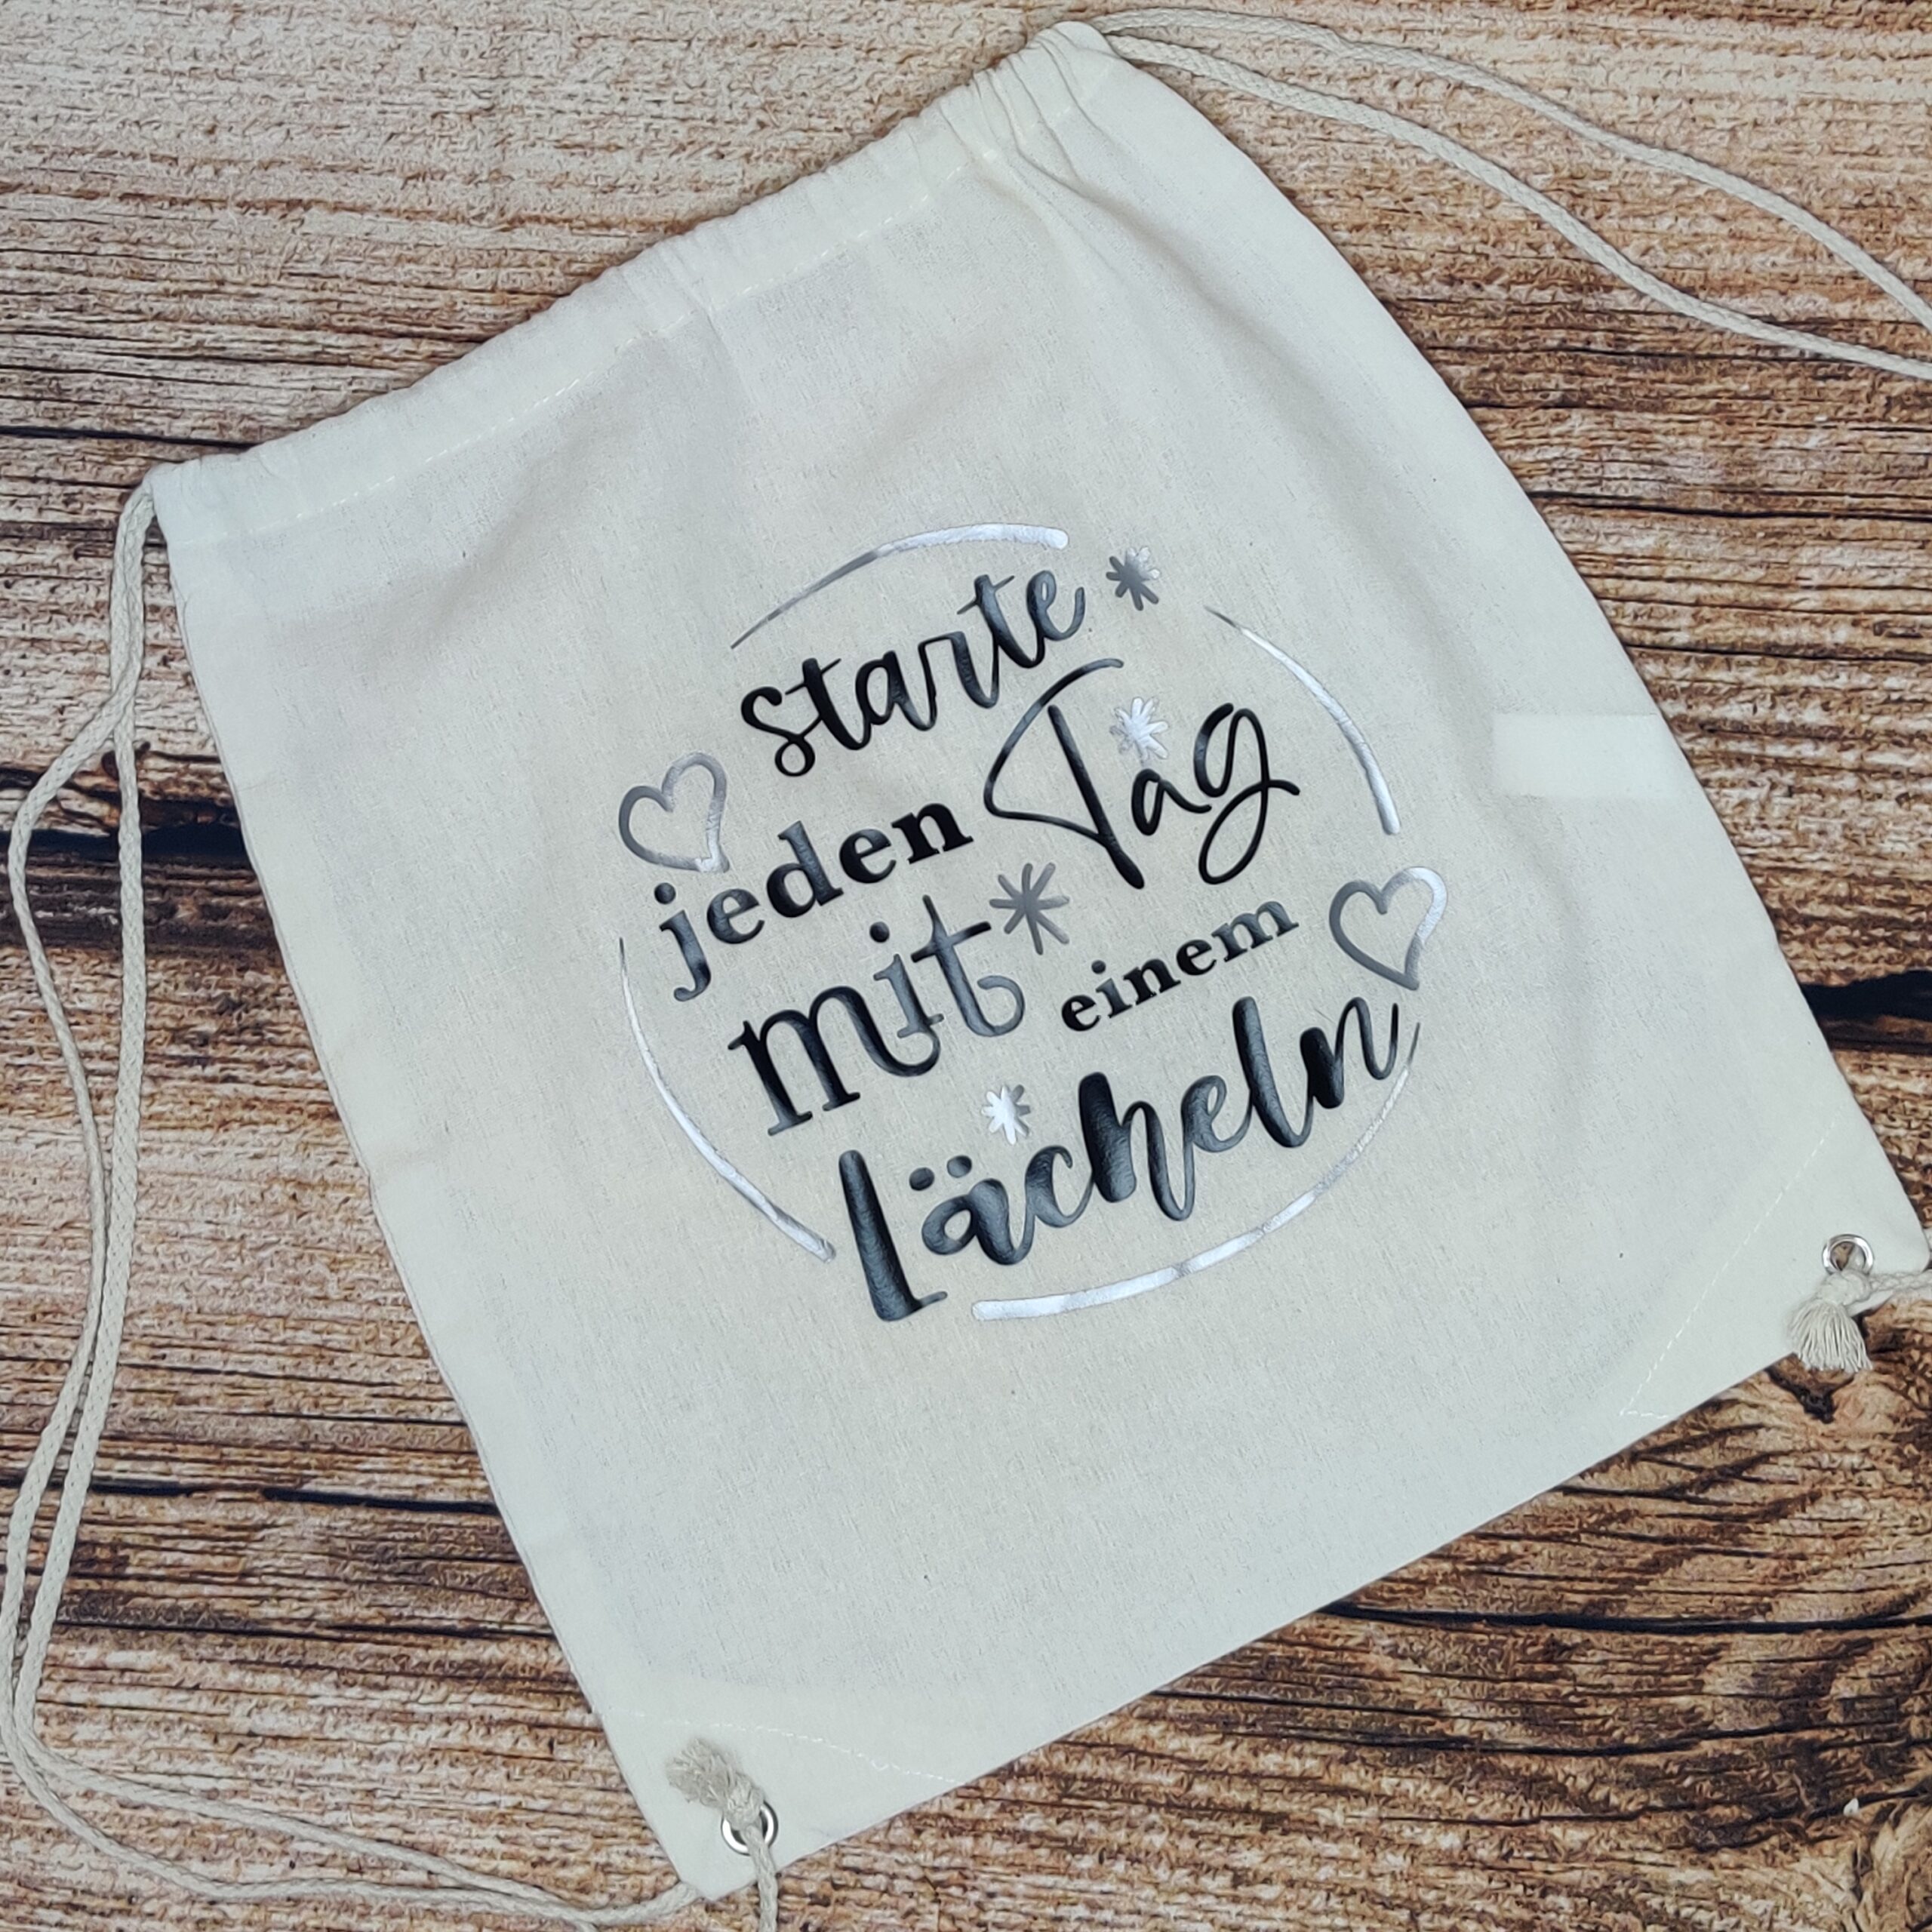 starte
jeden Tag
mit einem
lächeln